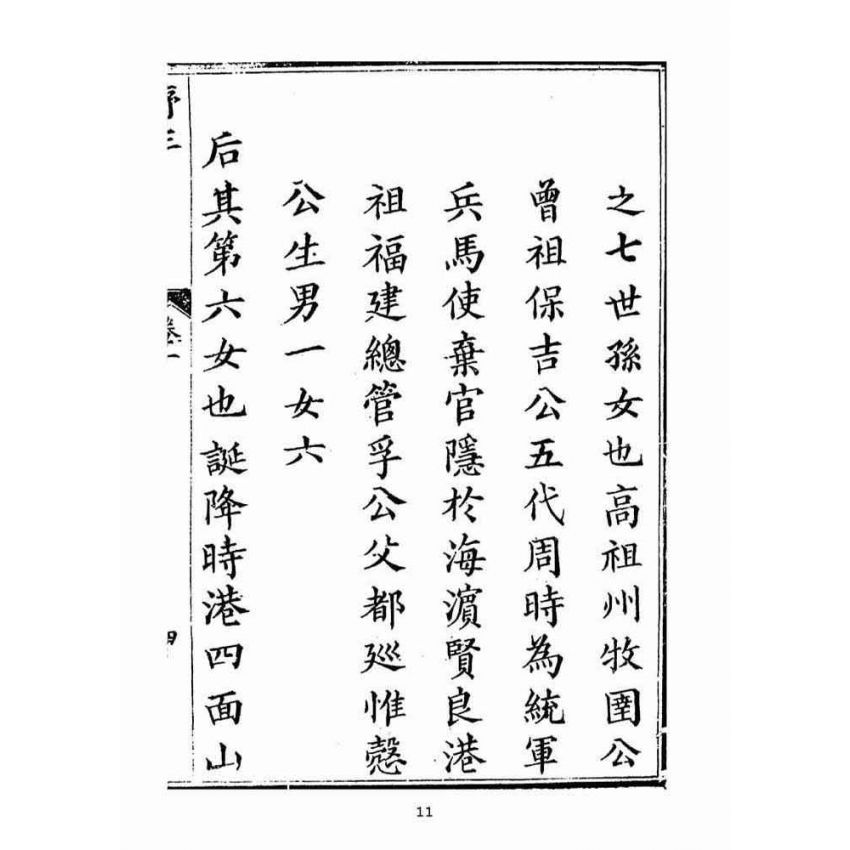 之七世孫女也高祖州牧圉公
曾祖保吉公五代周時為統軍
兵馬使棄官隱於海濵賢良港
祖福建總管孚公父都廵惟慤
公生男一女六
后其第六女也誕降時港四面山
序三
卷一
四
11